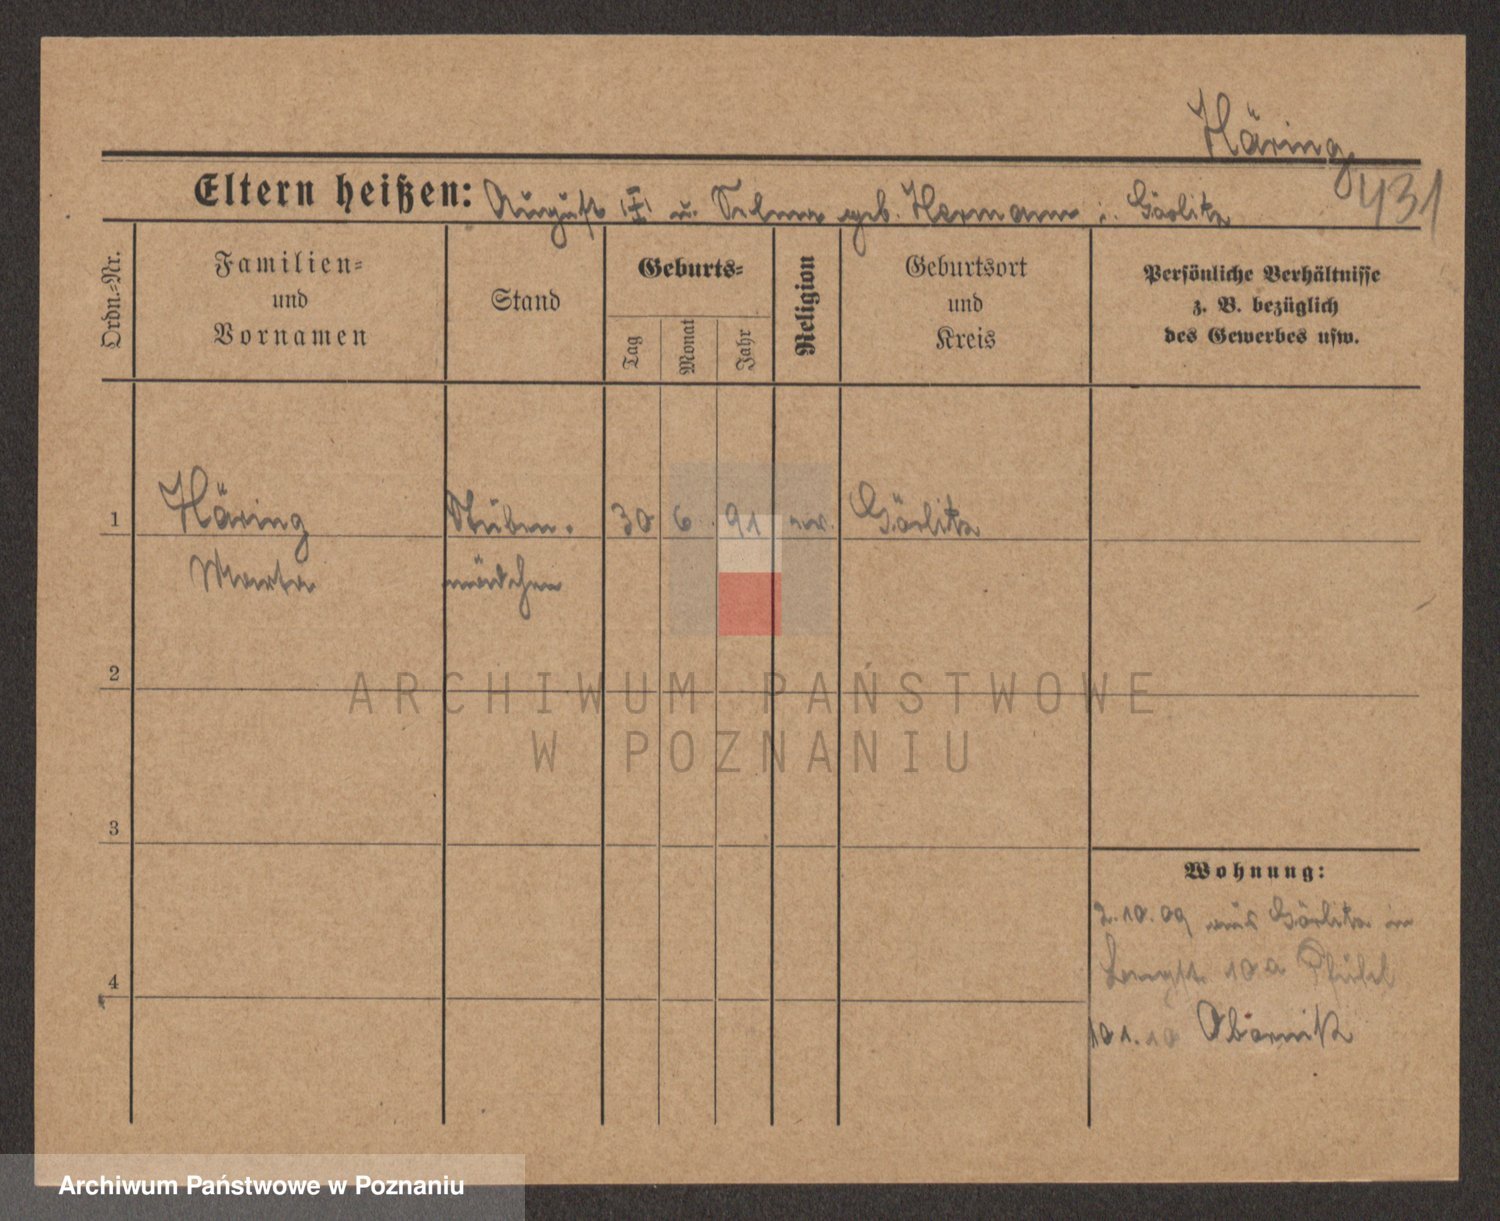 Häring
431
Eltern heißen: August u. Selma geb. Hermann i. Görlitz
Ordn.=Nr.
Familien=
und
Vornamen
Stand
Geburts=
Tag
Monat
Jahr
Religion
Geburtsort
und
Kreis
Persönliche Verhältnisse
z. B. bezüglich
des Gewerbes usw.
1
Häring Stuben- 30 6. 91 ev. Görlitz
Marta mädchen
2
ARCHIWUM PAŃSTWOWE
W POZNANIU
3
Wohnung:
2.10.09 aus Görlitz in
10a
4
10 1. 10 Obornik
Archiwum Państwowe w Poznaniu